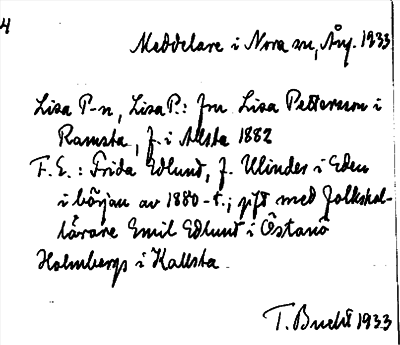 4
Meddelare i Nora sn, Ång. 1933
Lisa P-n, Lisa P.: fru Lisa Pettersson i
Ramsta, f. i Allsta 1882
F. E.: Frida Edlund, f. Ulinder i Eden
i början av 1880-t.; gift med folkskol-
lärare Emil Edlund i Östanö
Holmbergs i Kallsta
T. Bucht 1933